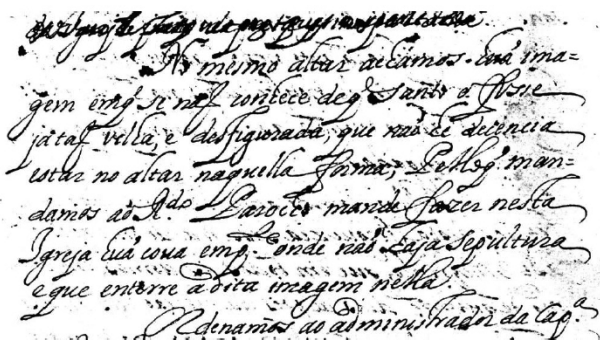 No mesmo altar achamos huá ima=
gem em q̃ se naõ conhece de q̃ Santo o fosse
ja taõ velha, e desfigurada, que naõ he decencia
estar no altar naquella forma, Pello q̃ man=
damos ao R.do Parocho mande fazer nesta
Igreja huá cova em p.te onde naõ haja sepultura
e que enterre a dita imagem nella.
Ordenamos ao administrador da Cap.ª